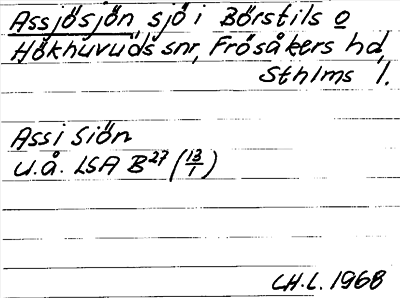 Assjösjön, sjö i Börstils o
Hökhuvuds snr, Frösåkers hd,
Sthlms l.
Assi Siön
u.å. LSA B²⁷ (13/1)
CH.L. 1968